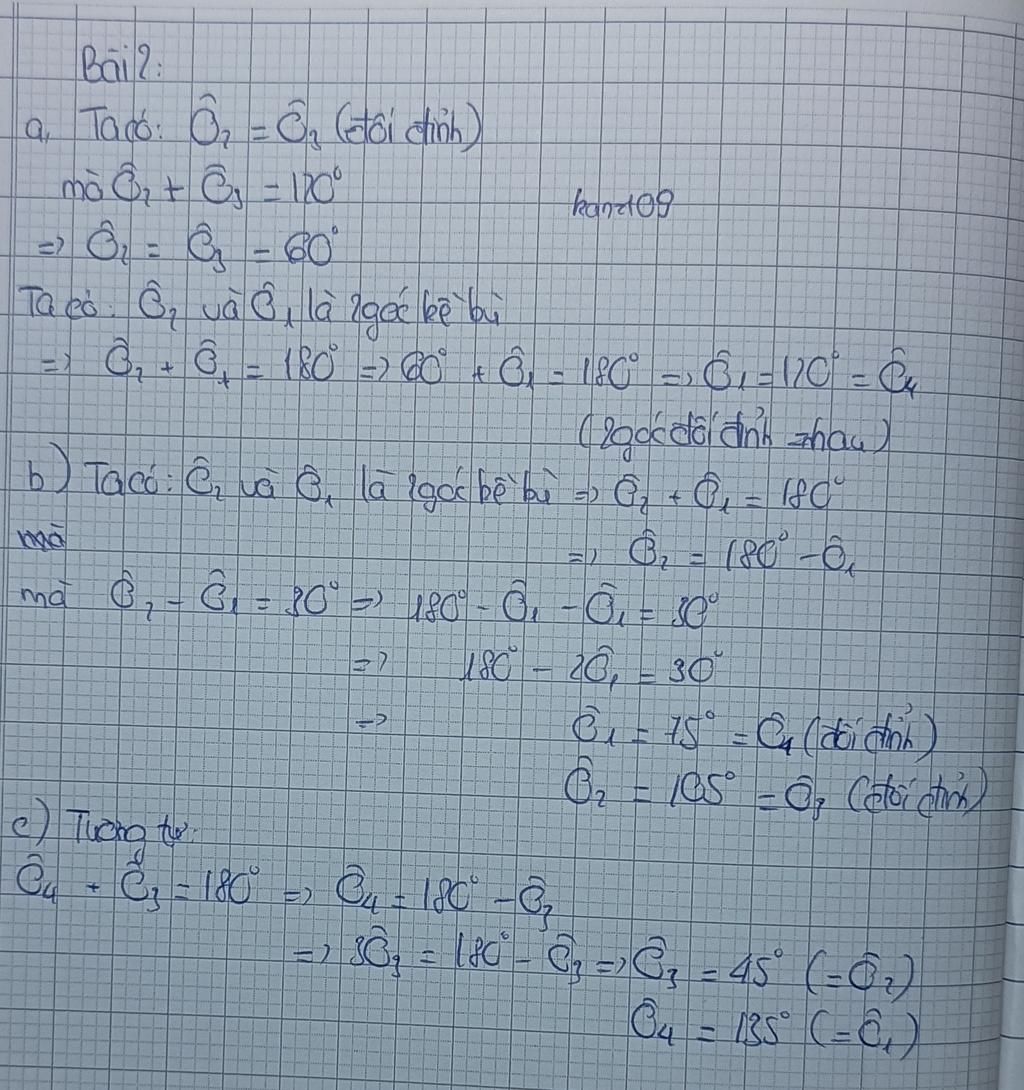 Bài 2:
a, Ta có: Ô₂ = Ô₃ (đối đỉnh)
mà Ô₂ + Ô₃ = 120°
hanz109
=> Ô₂ = Ô₃ = 60°
Ta có: Ô₂ và Ô₁ là 2 góc kề bù
=> Ô₂ + Ô₁ = 180° => 60° + Ô₁ = 180° => Ô₁ = 120° = Ô₄
(2 góc đối đỉnh nhau)
b) Ta có: Ô₂ và Ô₁ là 2 góc kề bù => Ô₂ + Ô₁ = 180°
mà => Ô₂ = 180° - Ô₁
mà Ô₂ - Ô₁ = 30° => 180° - Ô₁ - Ô₁ = 30°
=> 180° - 2Ô₁ = 30°
=> Ô₁ = 75° = Ô₄ (đối đỉnh)
Ô₂ = 105° = Ô₃ (đối đỉnh)
c) Tương tự:
Ô₄ + Ô₃ = 180° => Ô₄ = 180° - Ô₃
=> 3Ô₃ = 180° - Ô₃ => Ô₃ = 45° (= Ô₂)
Ô₄ = 135° (= Ô₁)